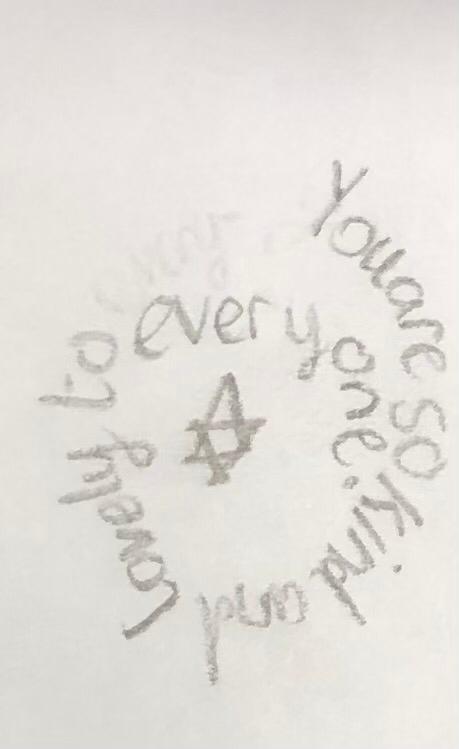 You are so kind and lovely to every one.